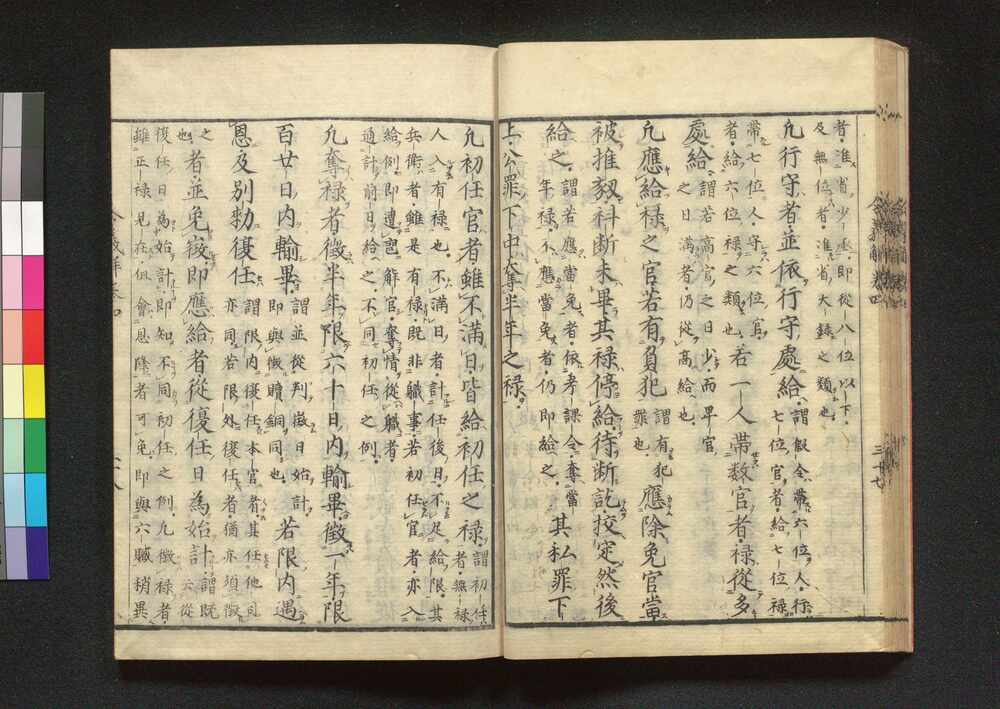 者准省少丞即從八位以下
及無位者准省大録之類也
凡行守者並依行守處給謂假令帶六位人行七位官者給七位禄
帶七位人守六位官者給六位禄之類也若一人帶数官者禄從多
處給謂若高官之日少而卑官之日満者仍從高給也
凡應給禄之官若有負犯謂有犯罪也應除免官當
被推劾科断未畢其禄停給待断訖挍定然後
給之謂若應當免者依考課令奪當年禄不應當免者仍即給之其私罪下
上公罪下中奪半年之禄
凡初任官者雖不満日皆給初任之禄謂初任者無禄
人入有禄也不満日者計任後日不足給限其兵衛者雖是有禄既非軄事若初任官者亦入
給例即遭喪解官奪情從軄者通計前日給之不同初任之例
凡奪禄者徴半年限六十日内輸畢徴一年限
百廿日内輸畢謂並從判徴日始計即與徴贖銅同也若限内遇
恩及別勑復任謂限内復任本官者其任他司亦同若限外復任者猶亦須徴
之也者並免徴即應給者從復任日為始計謂既云從
復任日為始計即知不同初任之例凡徴禄者
雖正禄見在但會恩降者可免即與六贓稍異